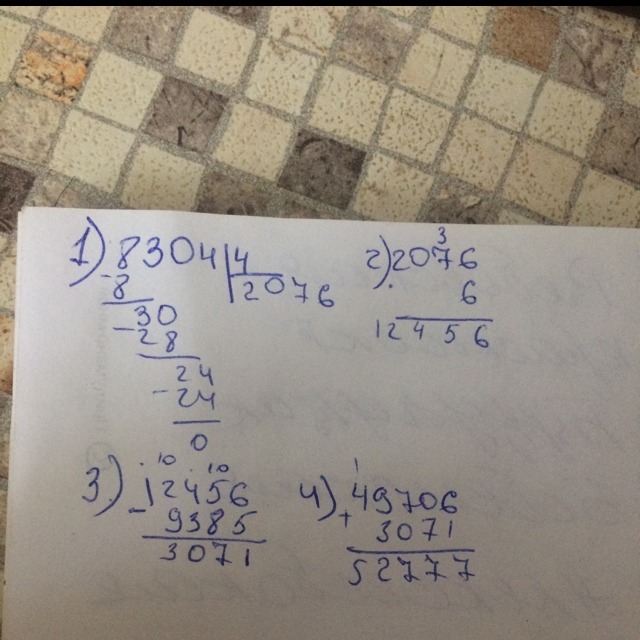 1) 8304 4
- 8 2076
30
- 28
24
- 24
0
3
2) 2076
· 6
12456
. 10 . 10
3) 12456
- 9385
3071
1
4) 49706
+ 3071
52777